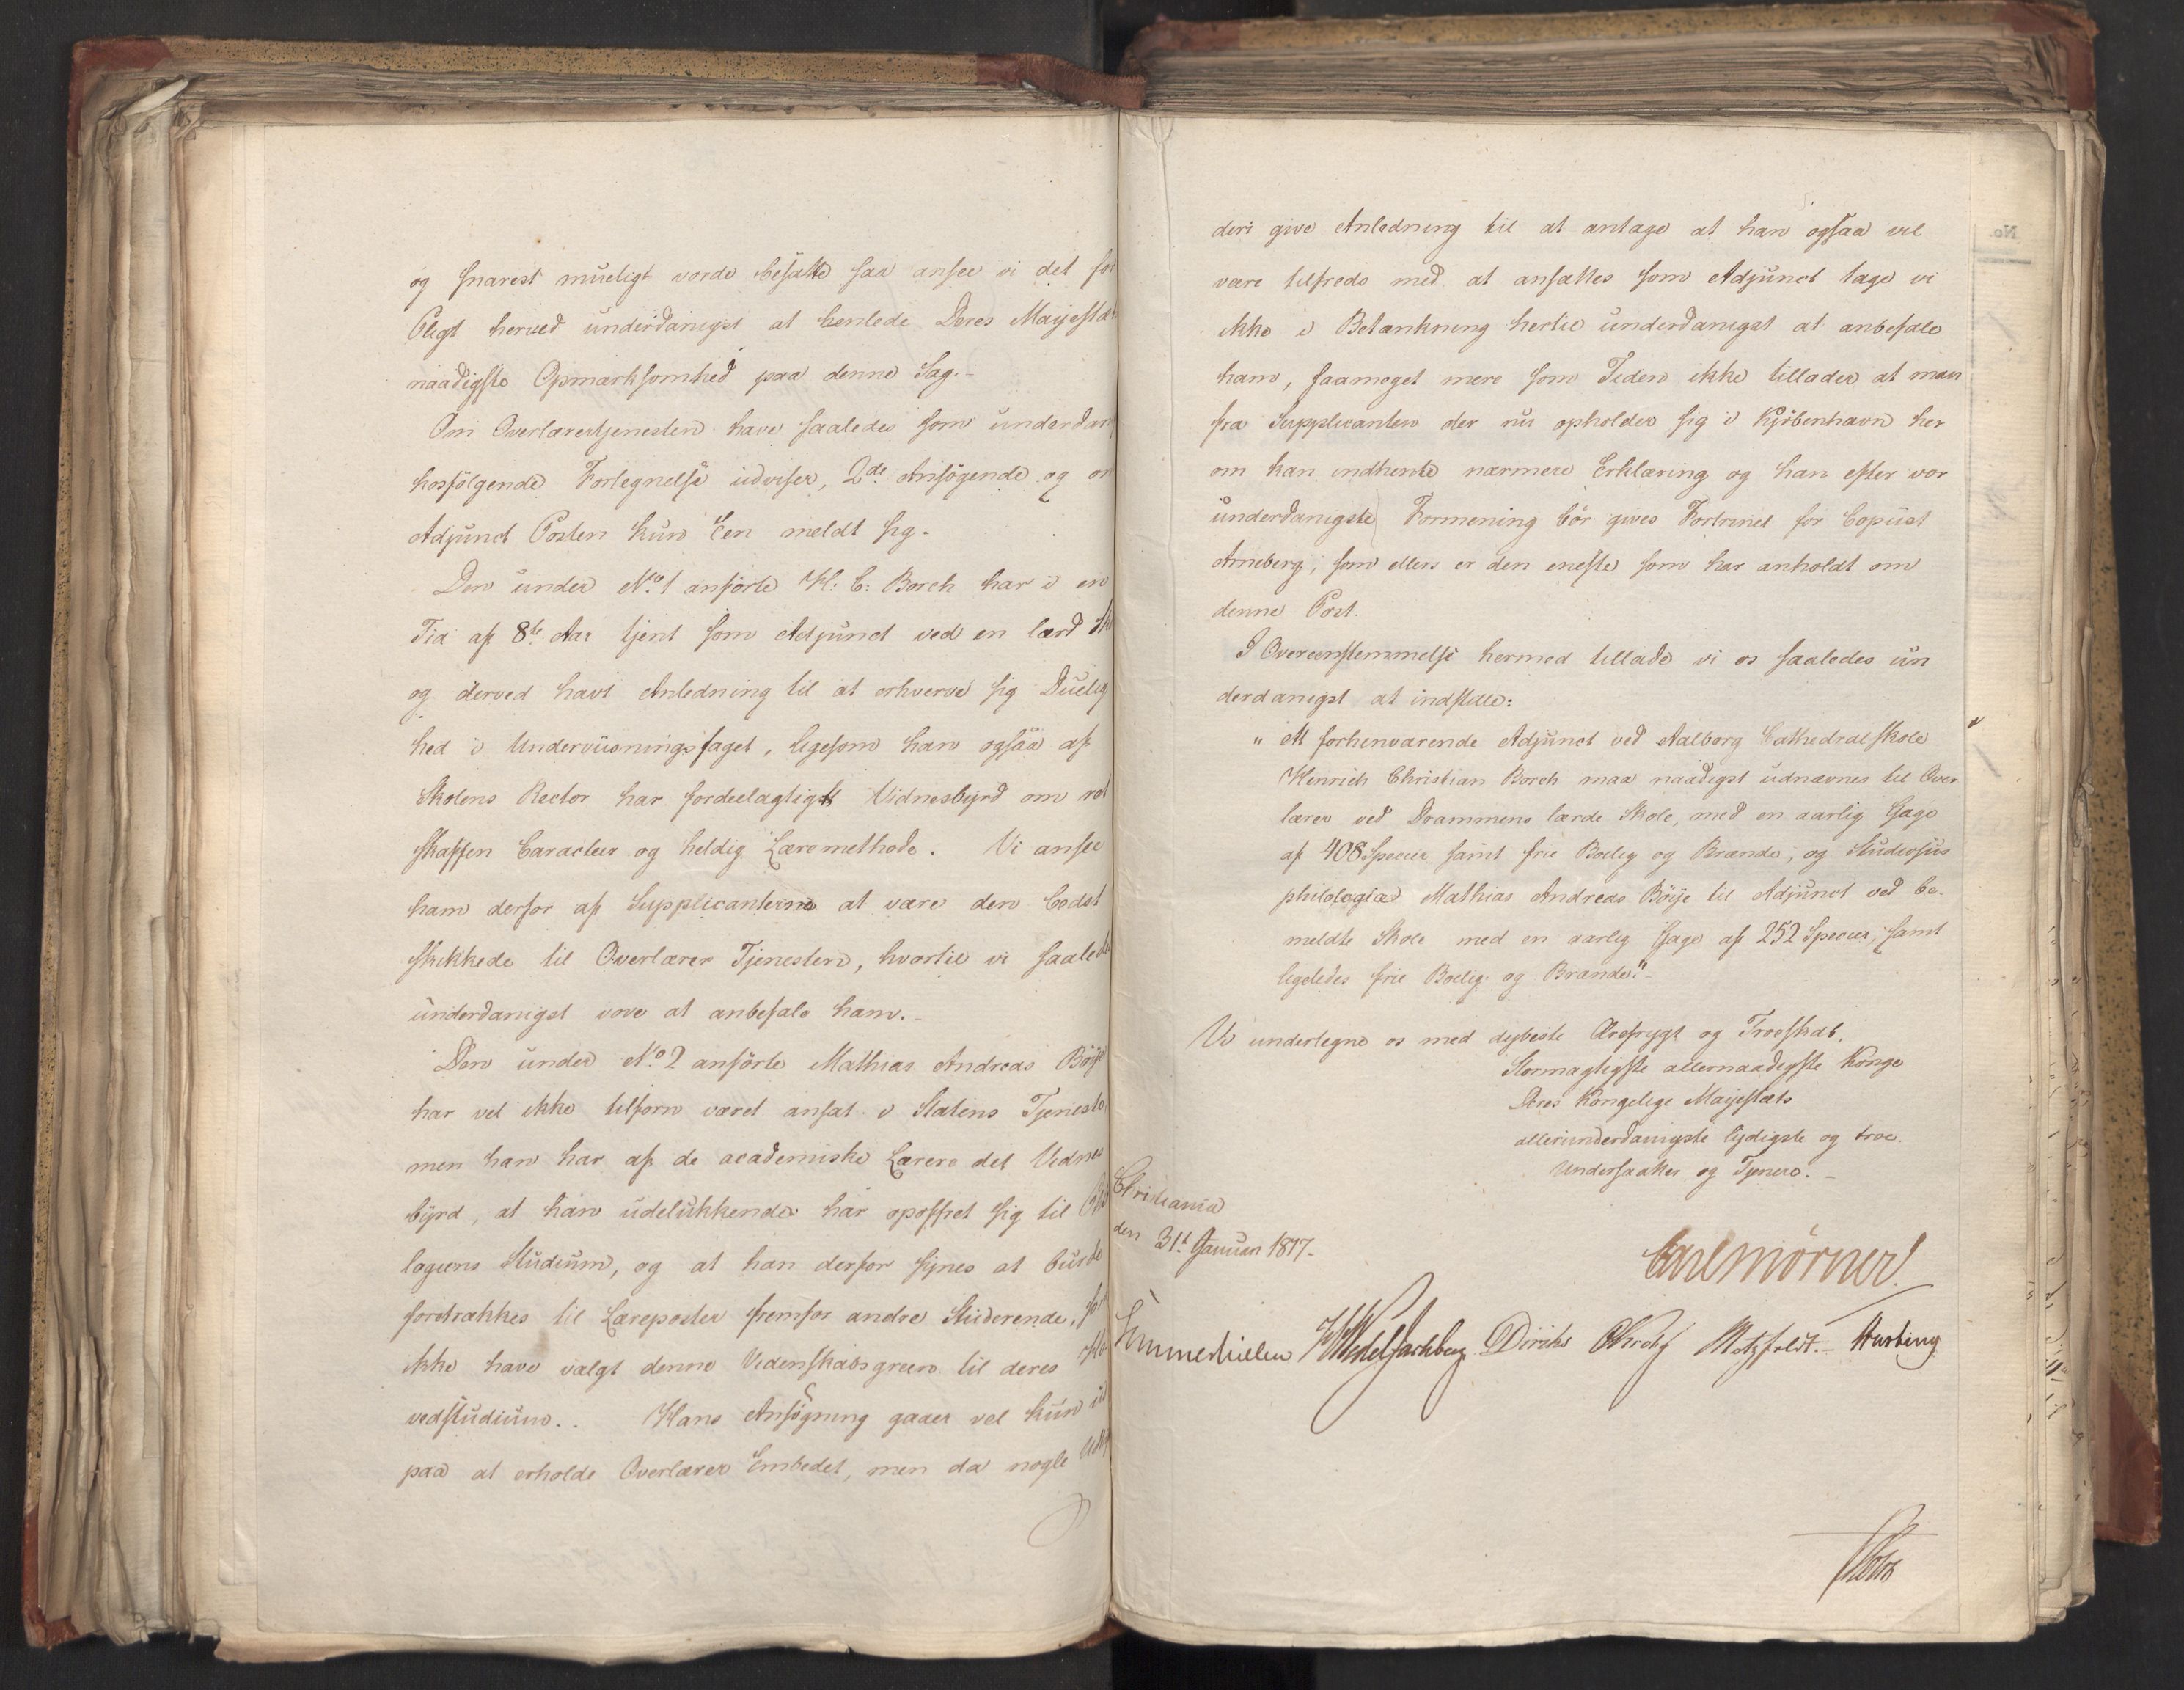 og snarest mueligt vorde besatte saa ansee vi det for
Pligt herved underdanigst at henlede Deres Majestæts
naadigste Opmærksomhed paa denne Sag.-
Om Overlærertjenesten have saaledes som underdan
hosfölgende Fortegnelse udviser, 2de Ansögende og om
Adjunct Posten kun Een meldt sig.
Den under No. 1 anförte H: C: Borch har i en
Tid af 8te Aar tjent som Adjunct ved en lærd Sko
og derved havt Anledning til at erhverve sig Duelig
hed i Underviisningsfaget, ligesom han ogsaa af
Skolens Rector har fordeelagtigt Vidnesbyrd om ret
skaffen Caracteer og heldig Læremethode. Vi ansee
ham derfor af Supplicanterne at være den bedst
skikkede til Overlærer Tjenesten, hvortil vi saalede
underdanigst vove at anbefale ham.-
Den under No. 2 anförte Mathias Andreas Böije
har vel ikke tilforn været ansat i Statens Tjeneste,
men han har af de academiske Lærere det Vidnes
byrd, at han udelukkende har opoffret sig til Philo
logiens Studium, og at han derfor synes at burde
foretrækkes til Læreposter fremfor andre Studerende, som
ikke have valgt denne Videnskabsgreen til deres Ho
vedstudium.. Hans Ansögning gaaer vel kun ud
paa at erholde Overlærer Embedet, men da nogle Udtryk
deri give Anledning til at antage at han ogsaa vil
være tilfreds med at ansættes som Adjunct tage vi
ikke i Betænkning hertil underdanigst at anbefale
ham, saameget mere som Tiden ikke tillader at man
fra Supplicanten der nu opholder sig i Kjöbenhavn her
om kan indhente nærmere Erklæring og han efter vor
underdanigste Formening bör gives Fortrinet for Copiist
Arneberg, som ellers er den eneste som har anholdt om
denne Post.
I Overeenstemmelse hermed tillade vi os saaledes un
derdanigst at indstille:
" At forhenværende Adjunct ved Aalborg Cathedralskole
Henrich Christian Borch maa naadigst udnævnes til Over
lærer ved Drammens lærde Skole, med en aarlig Gage
af 408 Specier samt frie Boelig og Brænde, og Studiosus
philologiæ Mathias Andreas Böije til Adjunct ved be-
meldte Skole med en aarlig Gage af 252 Specier, samt
ligeledes frie Boelig og Brænde."-
Vi undertegne os med dybeste Ærefrygt og Troeskab,
Stormægtigste allernaadigste Konge
Deres Kongelige Majestæts
allerunderdanigste lydigste og troe
Undersaatter og Tjenere.-
Christiania
den 31t Januari 1817.-
Carl Mörner
Sommerhielm HWedel Jarlsberg Diriks CKrohg Motzfeldt.- Hartung